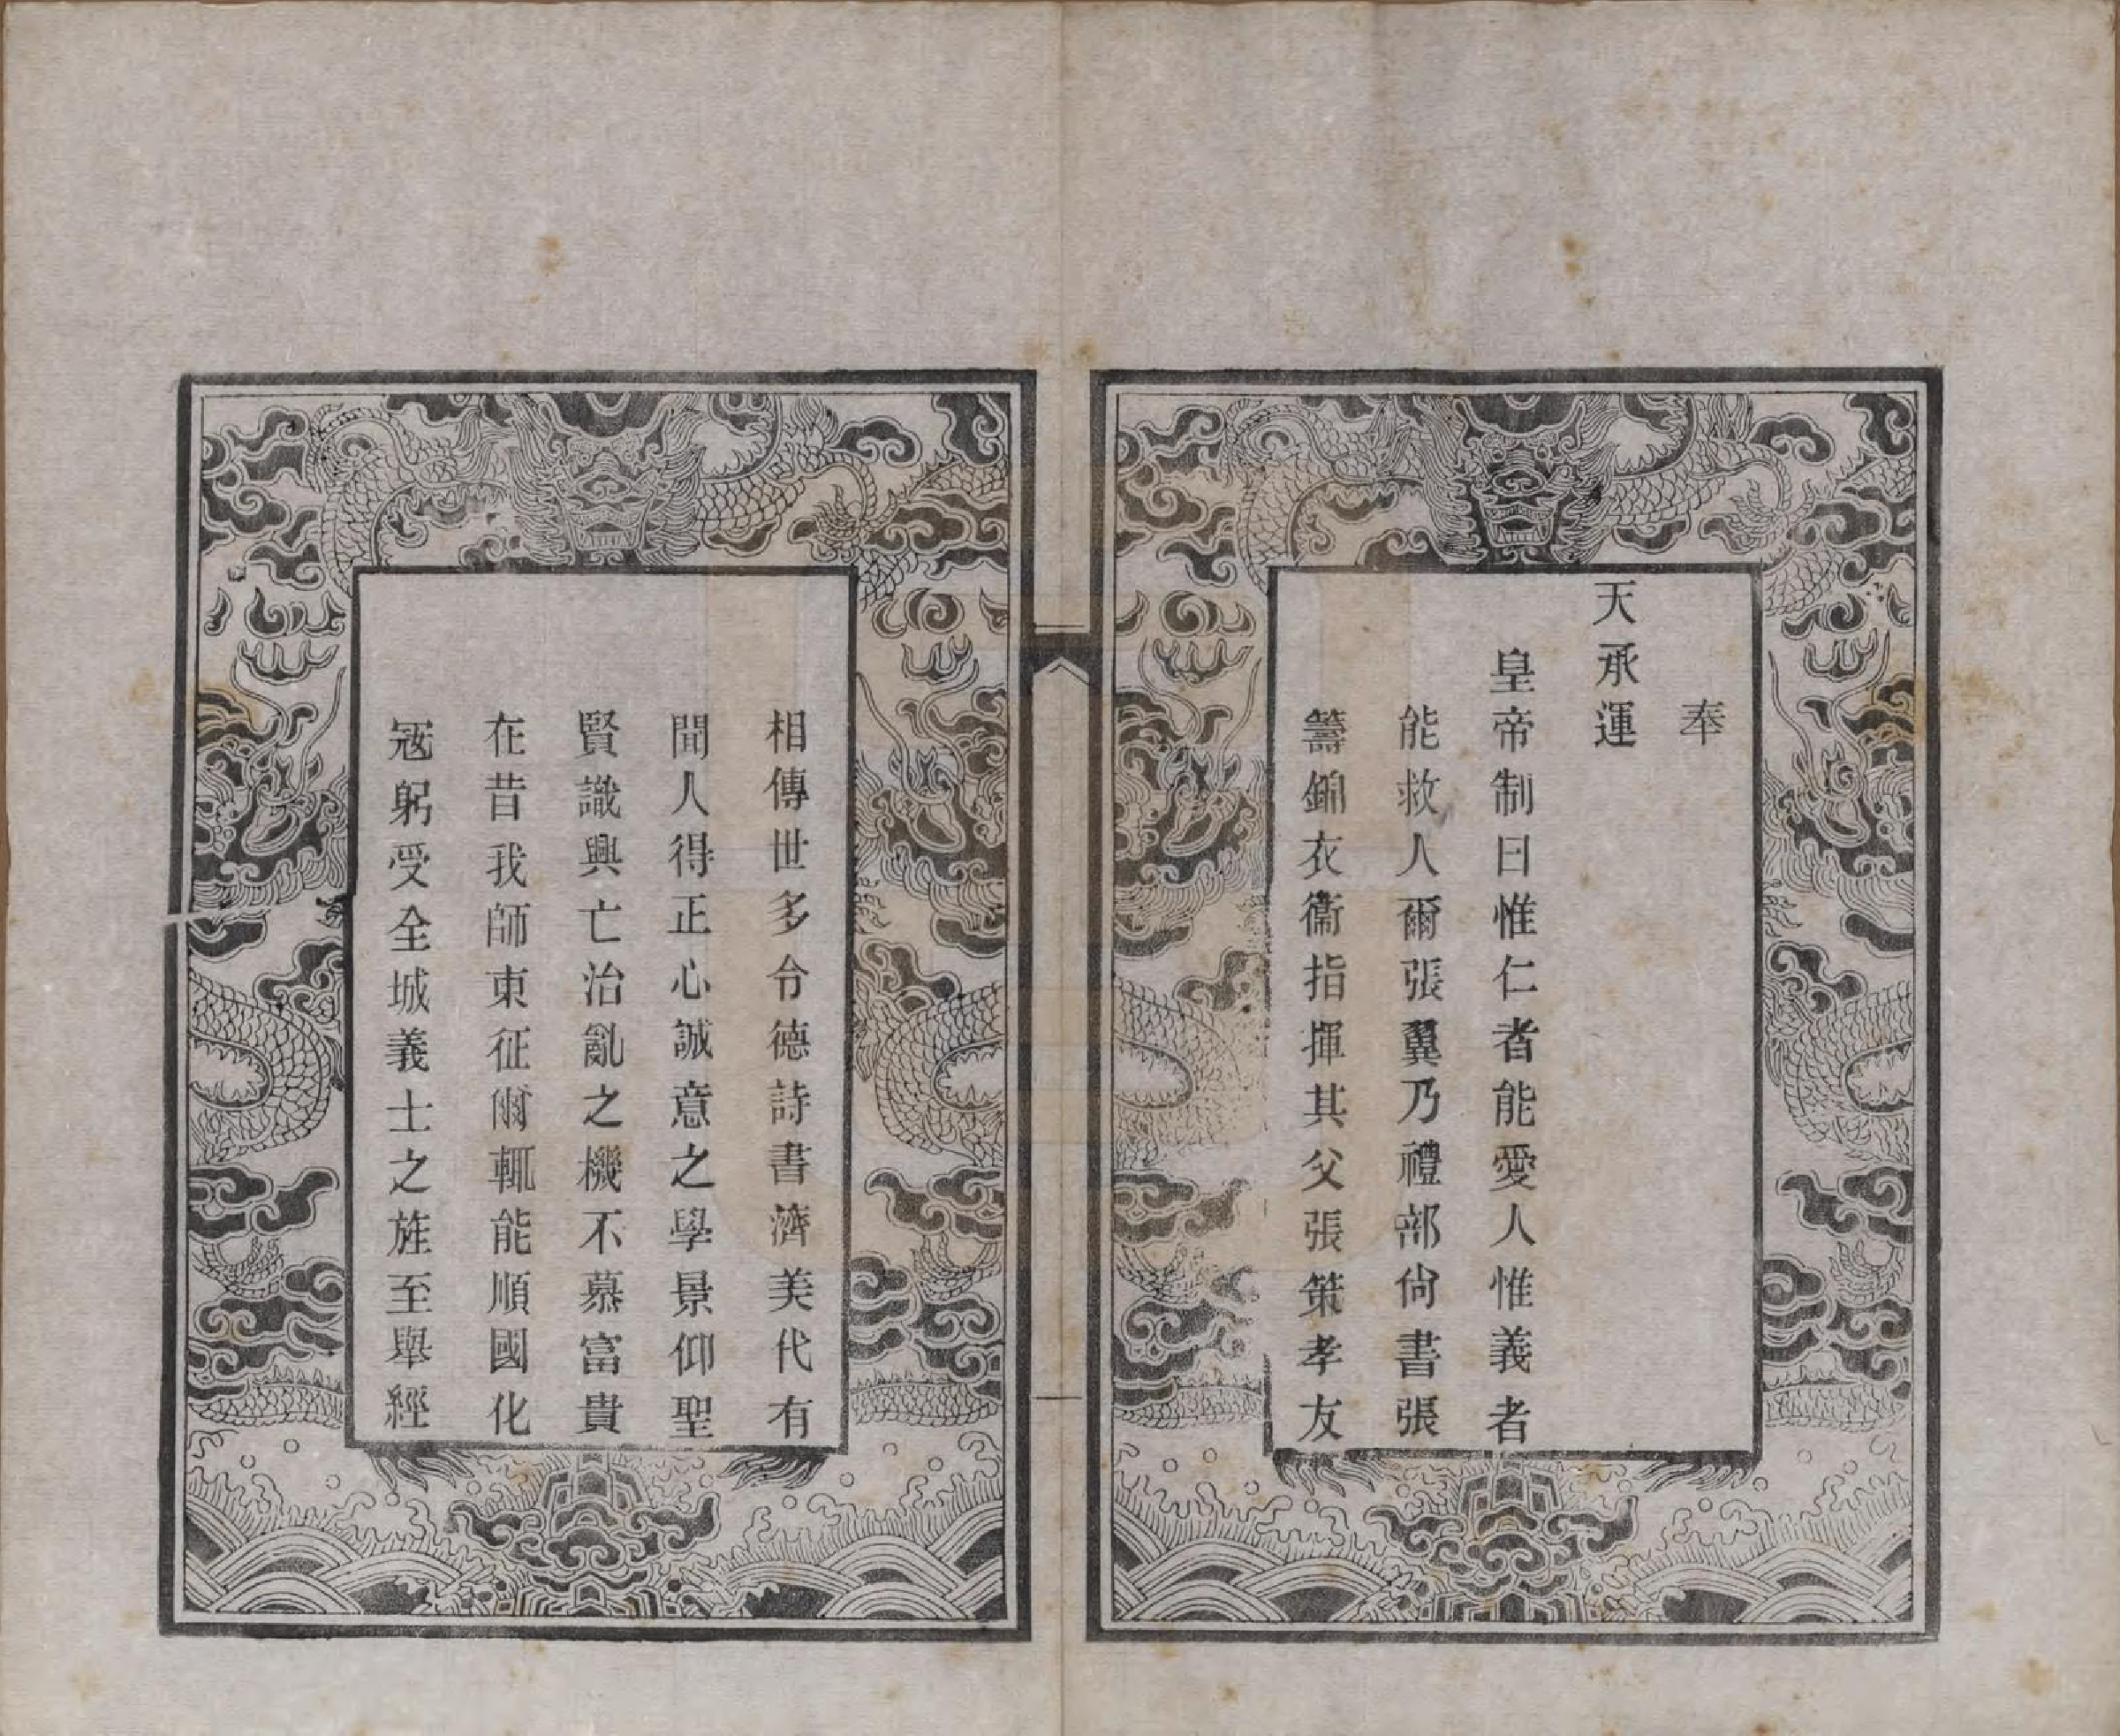 奉
天承運
皇帝制曰惟仁者能愛人惟義者
能救人爾張翼乃禮部尙書張
籌錦衣衞指揮其父張策孝友
相傳世多令德詩書濟美代有
聞人得正心誠意之學景仰聖
賢識興亡治亂之機不慕富貴
在昔我師東征爾輒能順國化
冦躬受全城義士之旌至舉經